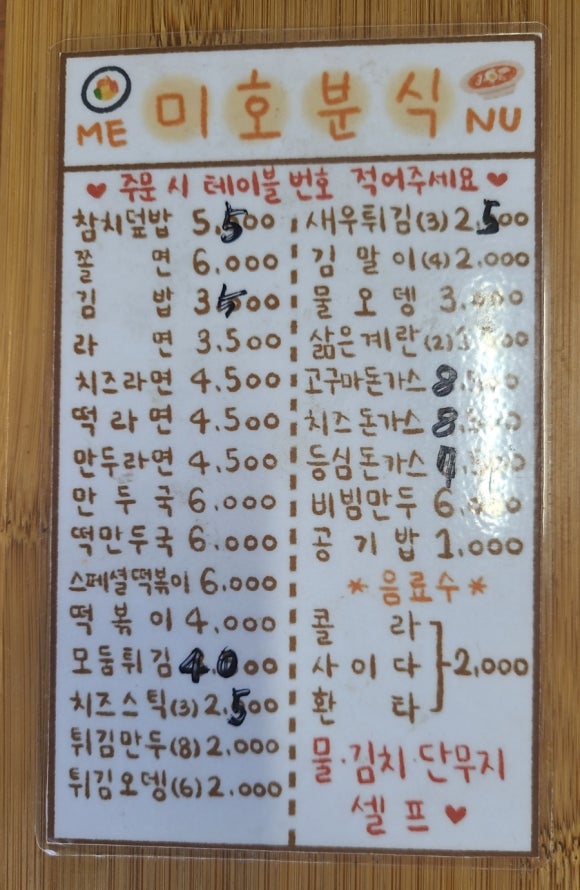 ME 미호분식 NU
♥ 주문 시 테이블 번호 적어주세요 ♥
참치덮밥 5.500
쫄면 6.000
김밥 3.500
라면 3.500
치즈라면 4.500
떡라면 4.500
만두라면 4.500
만두국 6.000
떡만두국 6.000
스페셜떡볶이 6.000
떡볶이 4.000
모둠튀김 4.000
치즈스틱(3) 2.500
튀김만두(8) 2.000
튀김오뎅(6) 2.000
새우튀김(3) 2.500
김말이(4) 2.000
물오뎅 3.000
삶은계란(2)
고구마돈가스
치즈돈가스
등심돈가스
비빔만두 6.000
공기밥 1.000
*음료수*
콜라
사이다 2,000
환타
물·김치·단무지
셀프 ♥